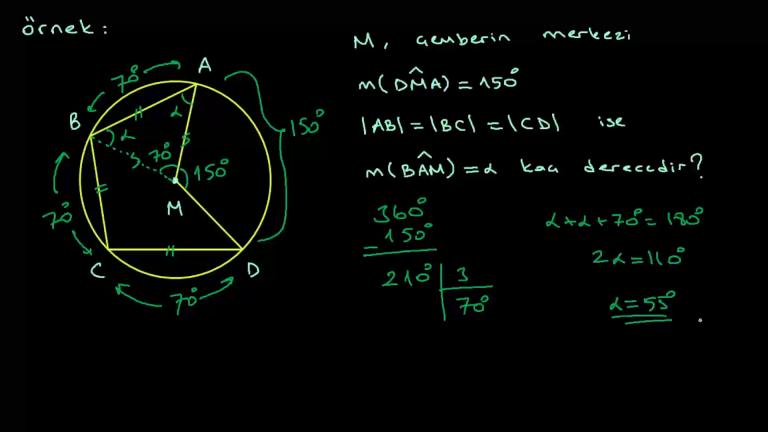 örnek:
M, çemberin merkezi
m(DMA) = 150°
|AB| = |BC| = |CD| ise
m(BAM) = α kaç derecedir?
A
70°
B
α
α
70°
150°
150°
M
70°
C
D
70°
360°
150°
210° | 3
70°
α + α + 70° = 180°
2α = 110°
α = 55°